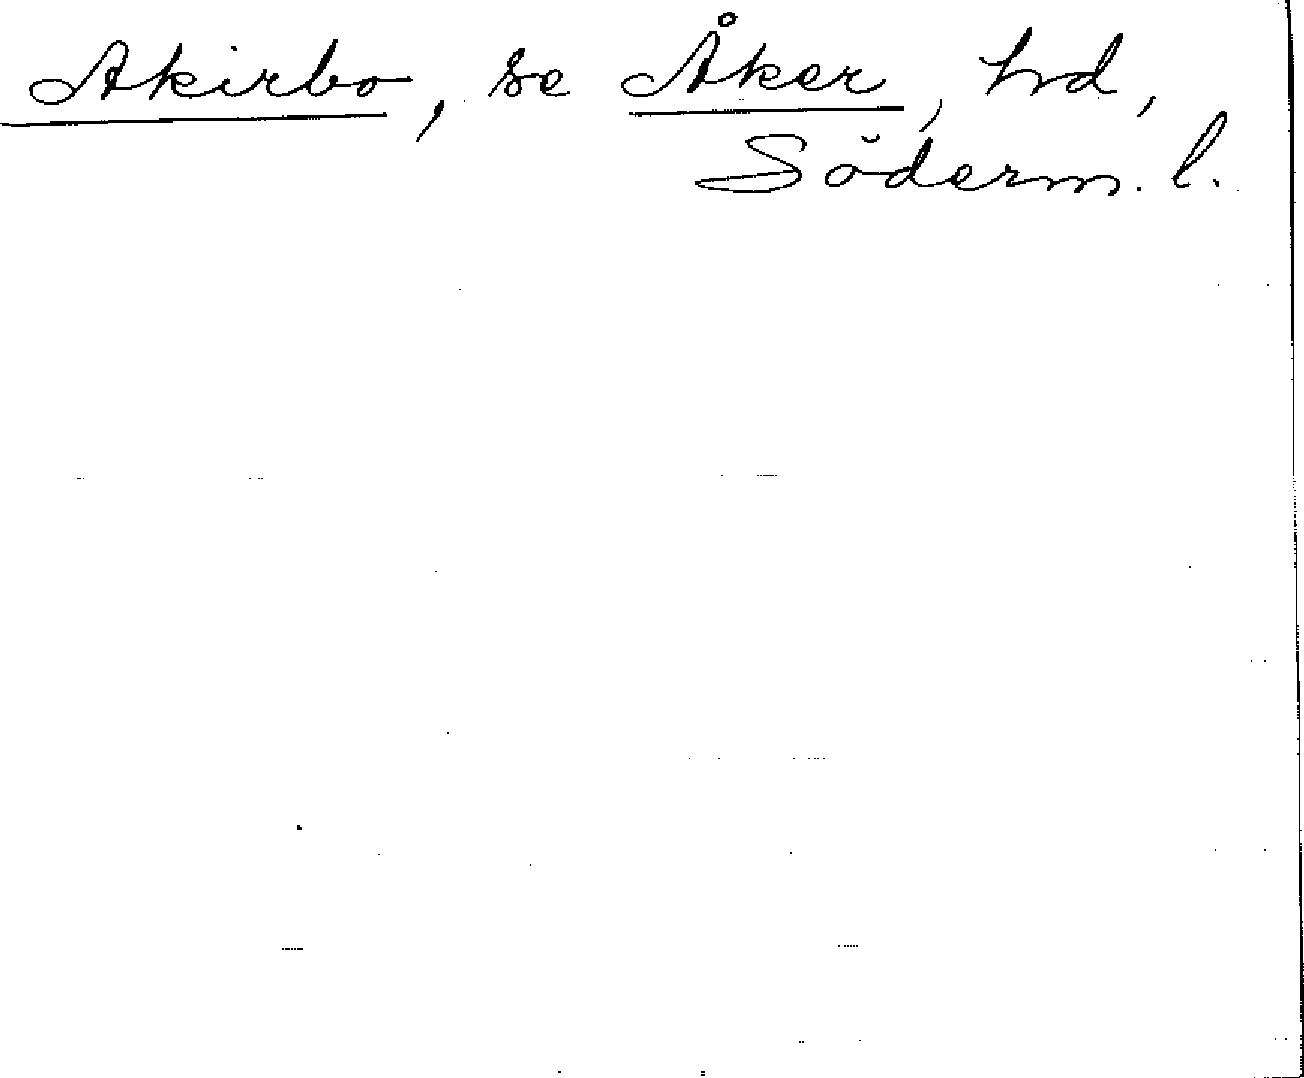 Akirbo, se Åker, hd,
Söderm. l.